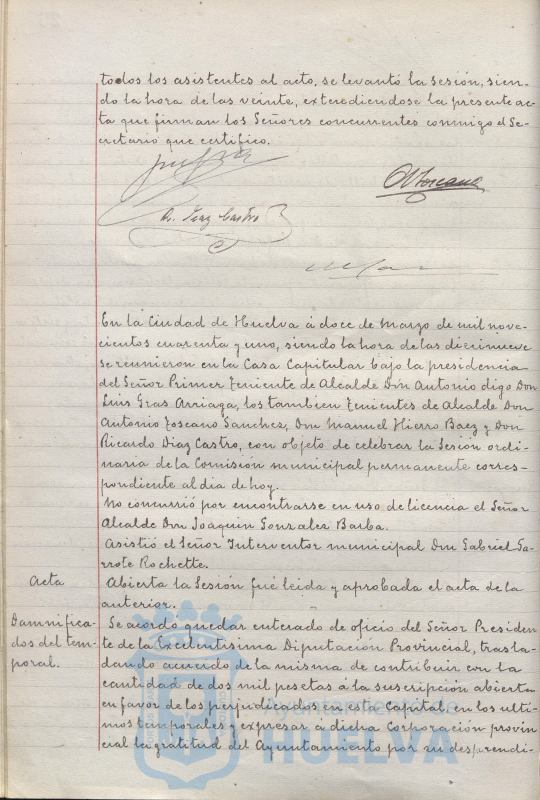 todos los asistentes al acto, se levantó la sesión, sien-
do la hora de las veinte, extendiéndose la presente ac-
ta que firman los Señores concurrentes conmigo el Se-
cretario que certifico.
A Toscano
R. Diaz Castro
En la Ciudad de Huelva á doce de Marzo de mil nove-
cientos cuarenta y uno, siendo la hora de las diecinueve
se reunieron en la Casa Capitular bajo la presidencia
del Señor Primer Teniente de Alcalde Don Antonio digo Don
Luis Gras Arriaga, los tambien Tenientes de Alcalde Don
Antonio Toscano Sanches, Don Manuel Hierro Baez y Don
Ricardo Diaz Castro, con objeto de celebrar la Sesion ordi-
naria de la Comisión municipal permanente corres-
pondiente al dia de hoy.
No concurrió por encontrarse en uso de licencia el Señor
Alcalde Don Joaquin Gonzalez Barba.
Asistió el Señor Interventor municipal Don Gabriel Ga-
rrote Rochette.
Acta
Abierta la Sesión fué leida y aprobada el acta de la
anterior.
Damnifica-
dos del tem-
poral.
Se acordó quedar enterado de oficio del Señor Presiden
te de la Excelentisima Diputación Provincial, trasla-
dando acuerdo de la misma de contribuir con la
cantidad de dos mil pesetas á la suscripción abierta
en favor de los perjudicados en esta Capital en los ulti-
mos temporales y expresar a dicha Corporación provin
cial la gratitud del Ayuntamiento por su desprendi-
Ayuntamiento de
HUELVA